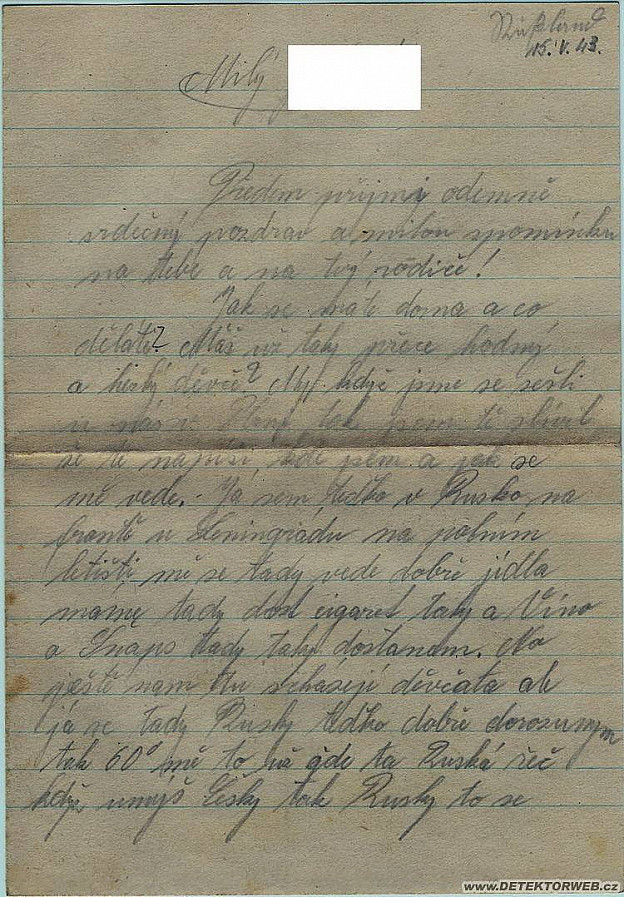 Rußland
15.V.43.
Milý
Předem přijmi odemně
srdečný pozdrav a milou spomínku
na tebe a na tvý rodiče!
Jak se máte doma a co
děláte? Máš už taky přece hodný
a heský děvče? My když jsme se sešli
u nás v tak jsem ti slíbil
že ti napíši, kde jsem a jak se
mě vede. Ja sem teďko v Rusko na
frontě u Leningradu na polním
letišti, mě se tady vede dobře jídla
mame tady dost cigaret taky a Víno
a Šnaps tady taky dostanem. No
ještě nam tu schásejí děvčata ale
já se tady Rusky teďko dobře dorozumym
tak 60% mě to už gde ta Ruská řeč
když umyš česky tak Rusky to se
www.DETEKTORWEB.cz